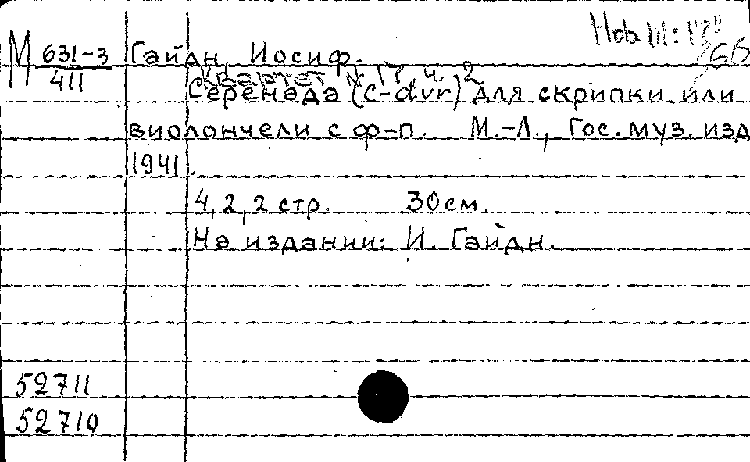 М 631-3 Гайдн, Иосиф.
411 Квартет № 17. ч. 2
Серенада (C-dur) для скрипки или
виолончели с ф-п. М.-Л., Гос. муз. изд
1941.
4, 2, 2 стр. 30 см.
На издании: И. Гайдн.
52711
52710